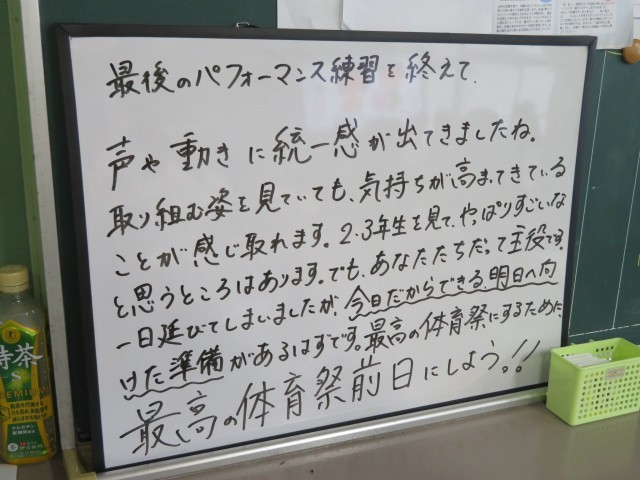 最後のパフォーマンス練習を終えて、
声や動きに統一感が出てきましたね。
取り組む姿を見ていても、気持ちが高まってきている
ことが感じ取れます。2.3年生を見て、やっぱりすごいな
と思うところはあります。でも、あなたたちだって主役です。
一日延びてしまいましたが、今日だからできる、明日へ向
けた準備があるはずです。最高の体育祭にするために、
最高の体育祭前日にしよう。!!
特茶